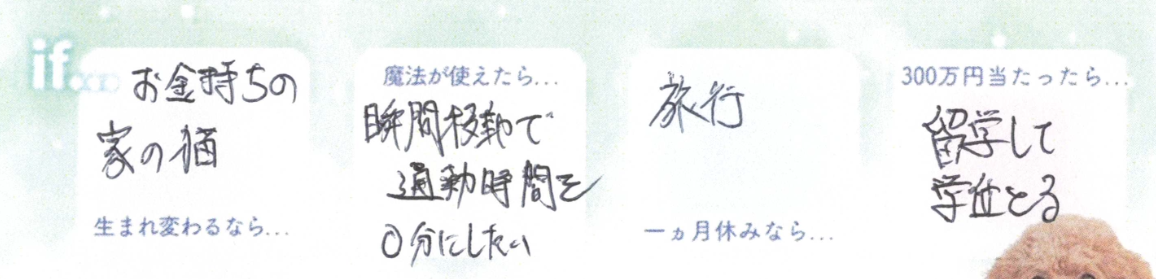 if...
お金持ちの
家の猫
生まれ変わるなら...
魔法が使えたら...
瞬間移動で
通勤時間を
0分にしたい
旅行
一ヵ月休みなら...
300万円当たったら...
留学して
学位とる